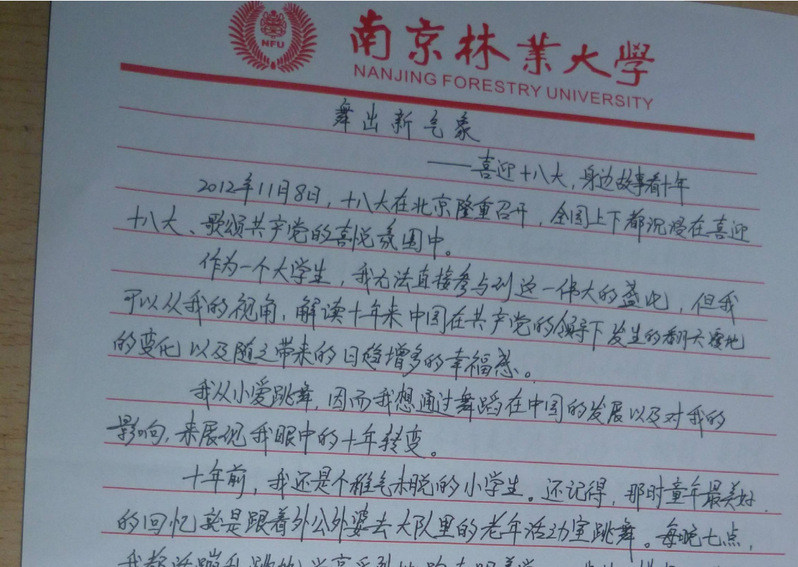 NFU
南京林业大学
NANJING FORESTRY UNIVERSITY
舞出新气象
——喜迎十八大,身边故事看十年
2012年11月8日,十八大在北京隆重召开,全国上下都沉浸在喜迎
十八大、歌颂共产党的喜悦氛围中。
作为一个大学生,我无法直接参与到这一伟大的盛况,但我
可以从我的视角,解读十年来中国在共产党的领导下发生的翻天覆地
的变化以及随之带来的日趋增多的幸福感。
我从小爱跳舞,因而我想通过舞蹈在中国的发展以及对我的
影响,来展现我眼中的十年转变。
十年前,我还是个稚气未脱的小学生。还记得,那时童年最美好
的回忆就是跟着外公外婆去大队里的老年活动室跳舞。每晚七点,
我都活蹦乱跳地